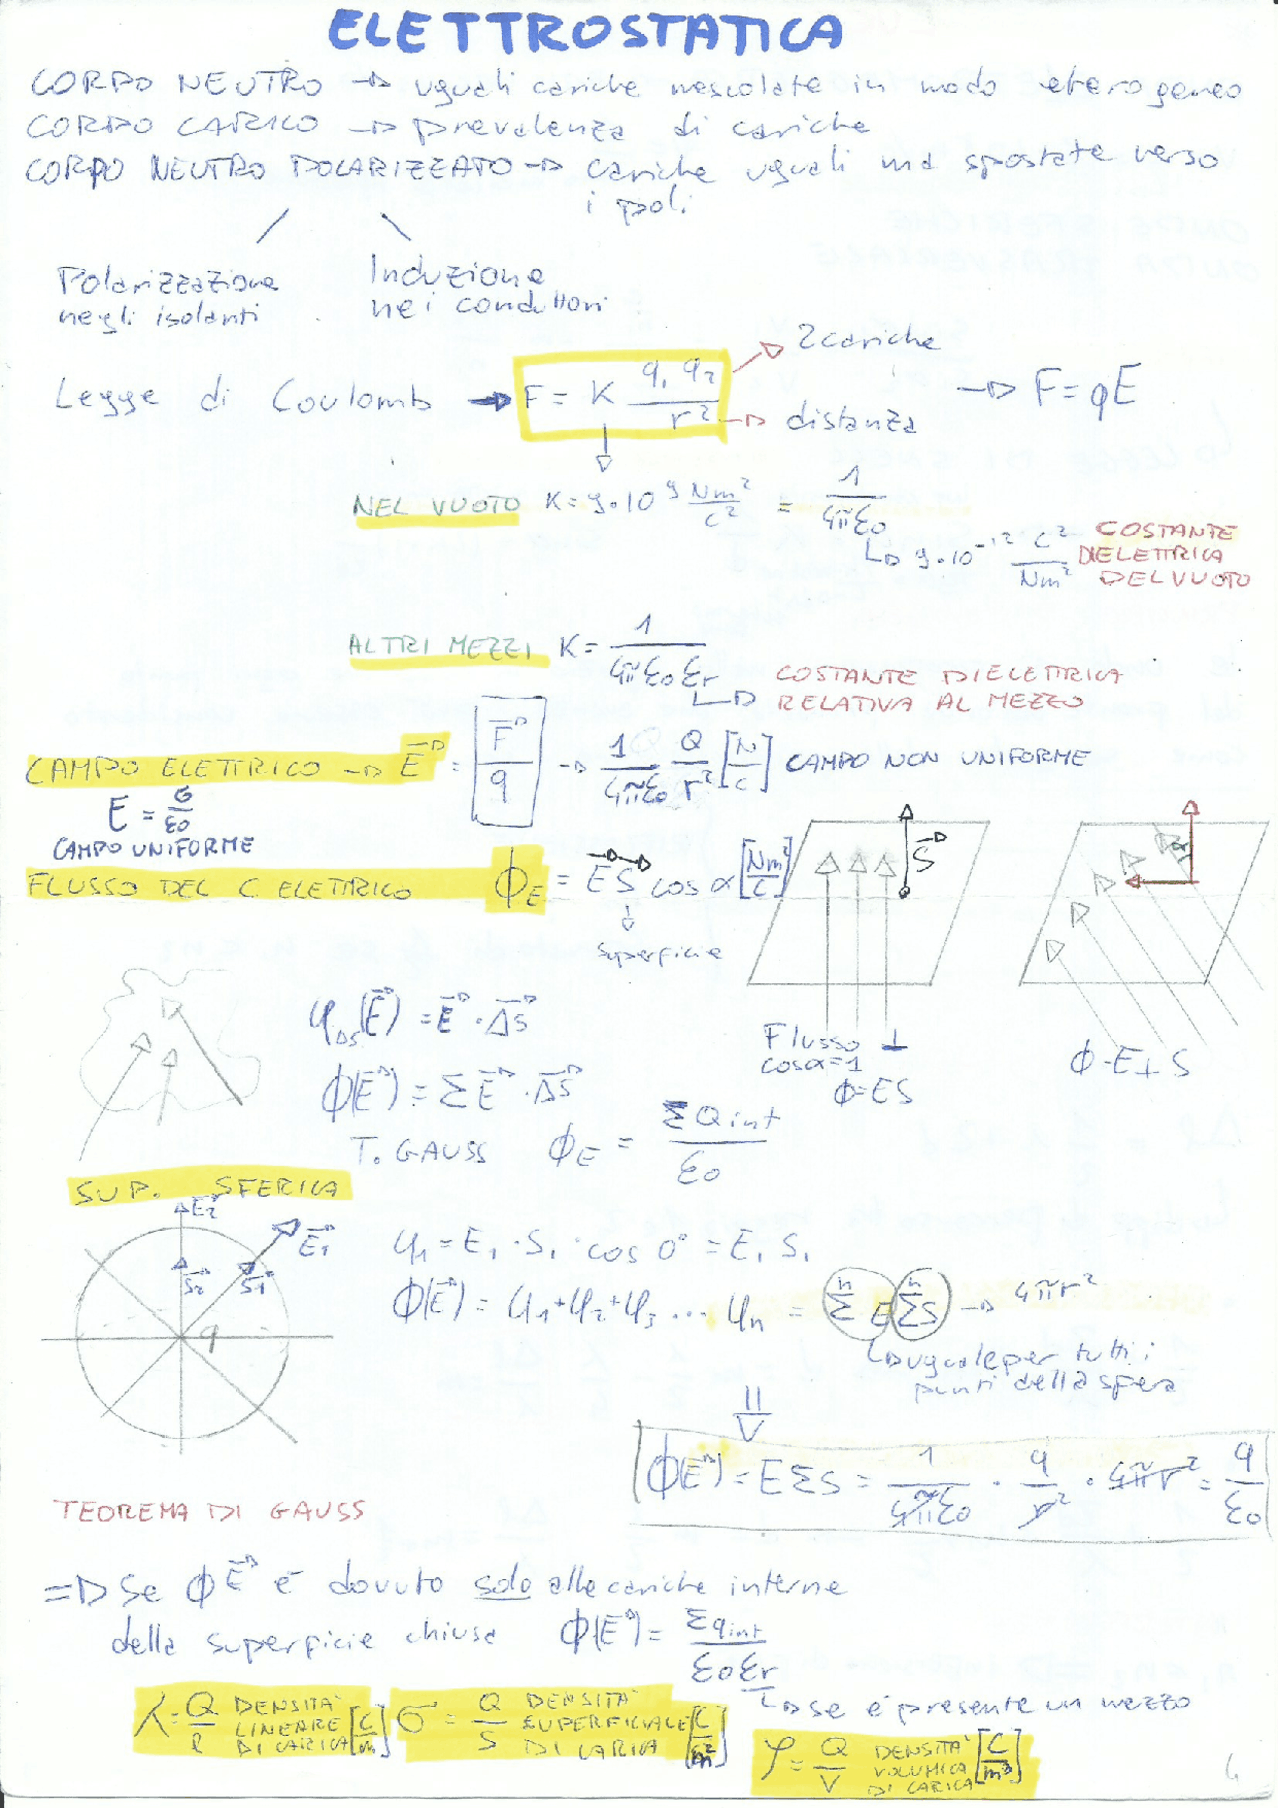 ELETTROSTATICA
CORPO NEUTRO → uguali cariche mescolate in modo eterogeneo
CORPO CARICO → prevalenza di cariche
CORPO NEUTRO POLARIZZATO → cariche uguali ma spostate verso
i poli
Polarizzazione
negli isolanti
Induzione
nei conduttori
Legge di Coulomb → F = K q₁ q₂ / r² → 2 cariche
→ distanza
→ F = qE
NEL VUOTO K = 9·10⁹ Nm²/C² = 1/4πε₀
↳ 9·10⁻¹² C²/Nm² COSTANTE
DIELETTRICA
DEL VUOTO
ALTRI MEZZI K = 1/4πε₀εr
↳ COSTANTE DIELETTRICA
RELATIVA AL MEZZO
CAMPO ELETTRICO → E⃗ = F⃗/q → 1/4πε₀ Q/r² [N/C] CAMPO NON UNIFORME
E = σ/ε₀
CAMPO UNIFORME
FLUSSO DEL C ELETTRICO ϕE = E⃗S⃗ cos α [Nm²/C]
↓
superficie
S⃗
Flusso ⊥
cosα=1
ϕ=ES
ϕ=E⊥S
φΔs(E⃗) = E⃗ · ΔS⃗
ϕ(E⃗) = Σ E⃗ · ΔS⃗
T. GAUSS ϕE = ΣQint/ε₀
SUP. SFERICA
E⃗₂
E⃗₁
S⃗₂ S⃗₁
q
φ₁ = E₁ · S₁ · cos 0° = E₁ S₁
ϕ(E⃗) = φ₁+φ₂+φ₃ ... φn = Σⁿ E Σⁿ S → 4πr²
↳ uguale per tutti i
punti della sfera
ϕ(E⃗) = EΣS = 1/4πε₀ · q/r² · 4πr² = q/ε₀
TEOREMA DI GAUSS
⇒ Se ϕ E⃗ è dovuto solo alle cariche interne
della superficie chiusa ϕ(E⃗) = Σqint/ε₀εr
↳ se è presente un mezzo
λ = Q/l DENSITA' LINEARE DI CARICA [C/m]
σ = Q/S DENSITA' SUPERFICIALE DI CARICA [C/m²]
ρ = Q/V DENSITA' VOLUMICA DI CARICA [C/m³]